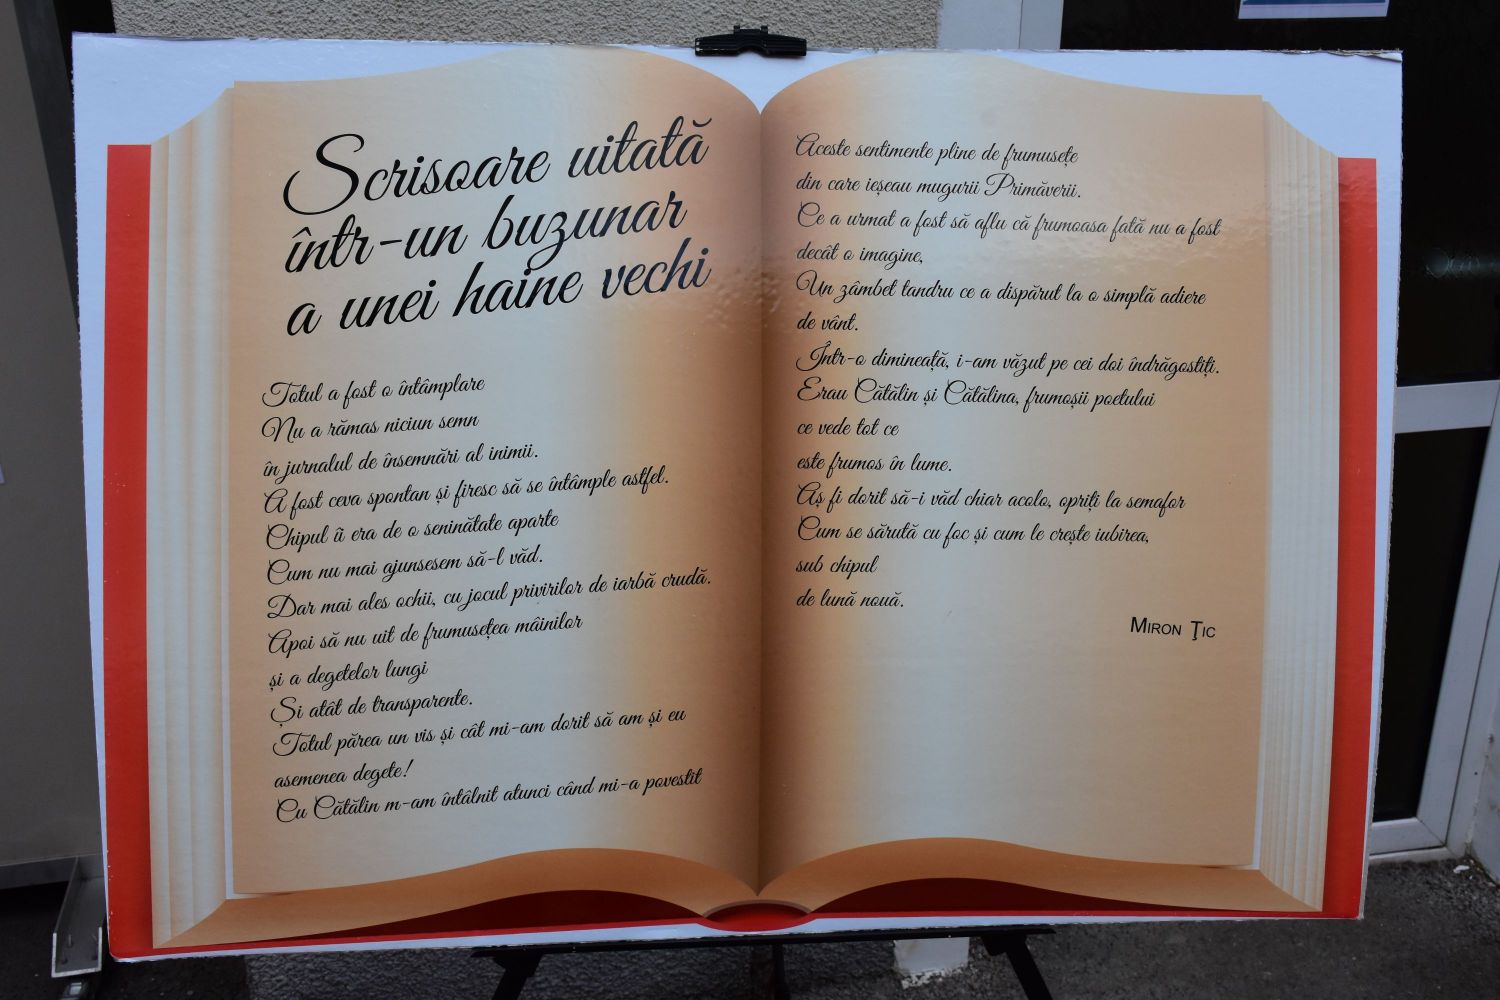 Scrisoare uitată
într-un buzunar
a unei haine vechi
Totul a fost o întâmplare
Nu a rămas niciun semn
în jurnalul de însemnări al inimii.
A fost ceva spontan și firesc să se întâmple astfel.
Chipul îi era de o seninătate aparte
Cum nu mai ajunsesem să-l văd.
Dar mai ales ochii, cu jocul privirilor de iarbă crudă.
Apoi să nu uit de frumusețea mâinilor
și a degetelor lungi
Și atât de transparente.
Totul părea un vis și cât mi-am dorit să am și eu
asemenea degete!
Cu Cătălin m-am întâlnit atunci când mi-a povestit
Aceste sentimente pline de frumusețe
din care ieșeau mugurii Primăverii.
Ce a urmat a fost să aflu că frumoasa fată nu a fost
decât o imagine,
Un zâmbet tandru ce a dispărut la o simplă adiere
de vânt.
Într-o dimineață, i-am văzut pe cei doi îndrăgostiți.
Erau Cătălin și Cătălina, frumoșii poetului
ce vede tot ce
este frumos în lume.
Aș fi dorit să-i văd chiar acolo, opriți la semafor
Cum se sărută cu foc și cum le crește iubirea,
sub chipul
de lună nouă.
Miron Ţic